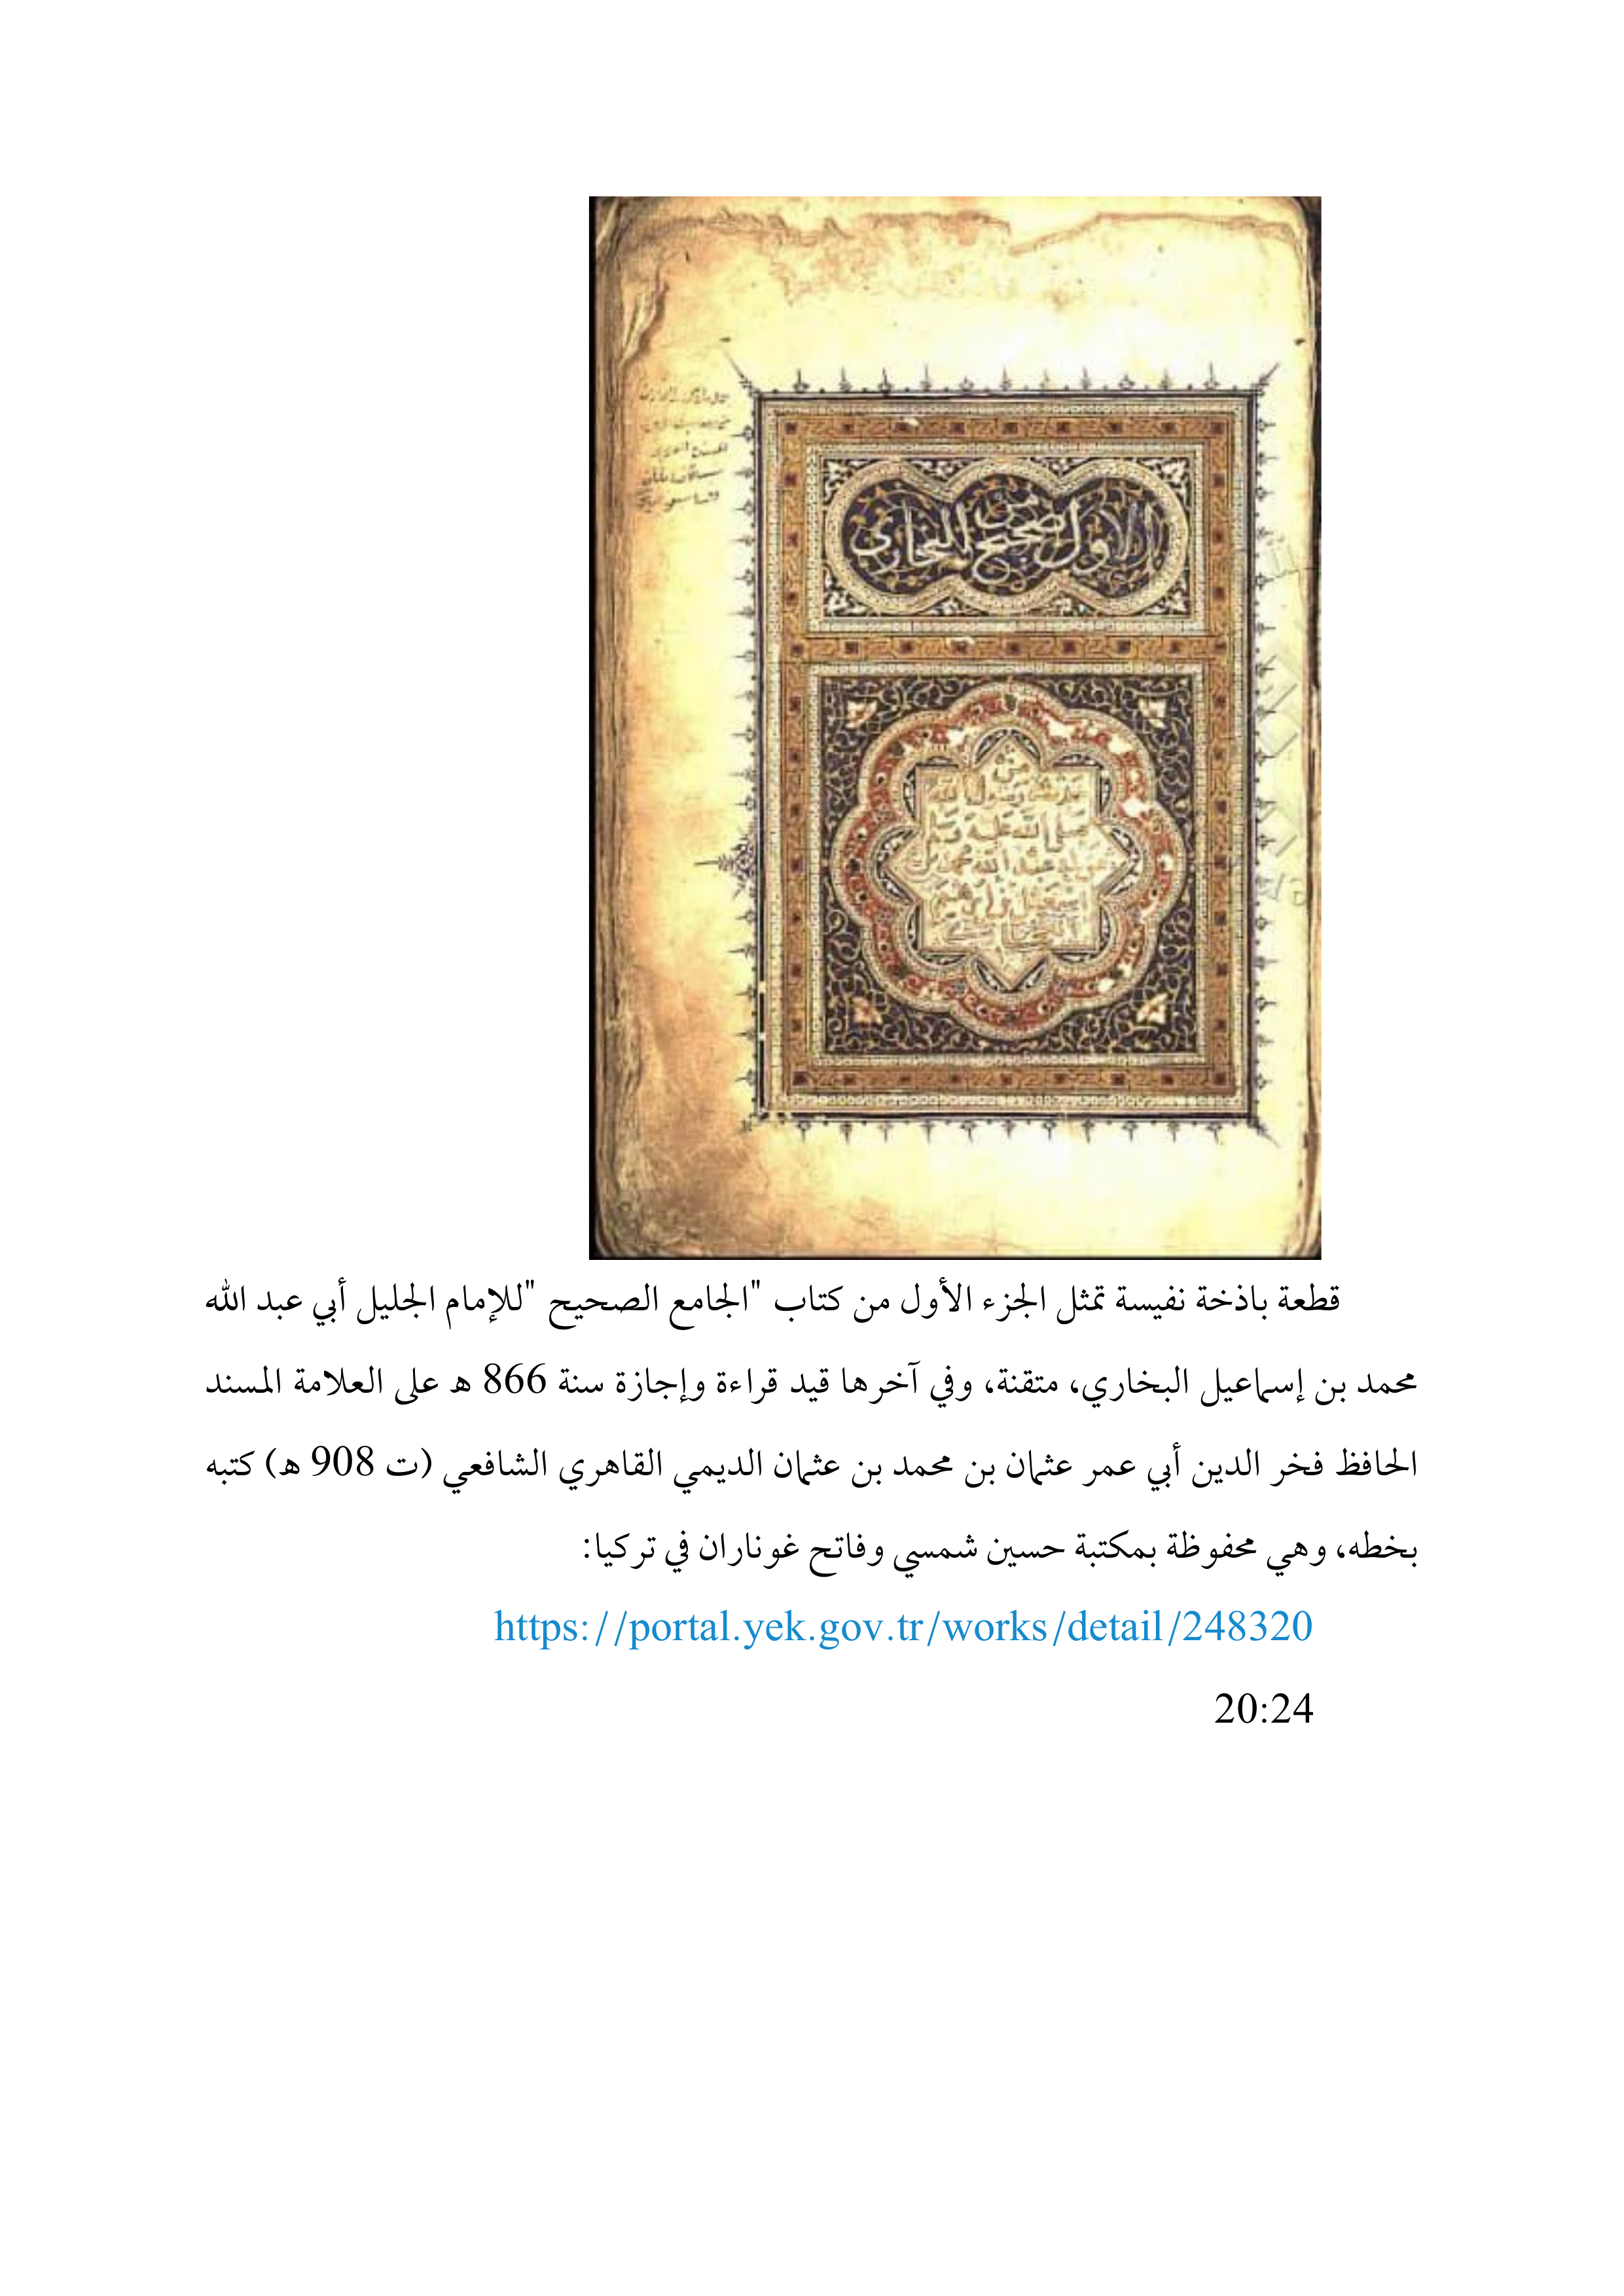 الاول من
صحيح البخاري
من
حديث رسول الله
صلى الله عليه وسلم
عن ابي عبد الله محمد بن
اسمعيل بن ابرهيم
البخاري
قطعة باذخة نفيسة تمثل الجزء الأول من كتاب "الجامع الصحيح "للإمام الجليل أبي عبد الله
محمد بن إسماعيل البخاري، متقنة، وفي آخرها قيد قراءة وإجازة سنة 866 هـ على العلامة المسند
الحافظ فخر الدين أبي عمر عثمان بن محمد بن عثمان الديمي القاهري الشافعي (ت 908 هـ) كتبه
بخطه، وهي محفوظة بمكتبة حسين شمسي وفاتح غوناران في تركيا:
https://portal.yek.gov.tr/works/detail/248320
20:24